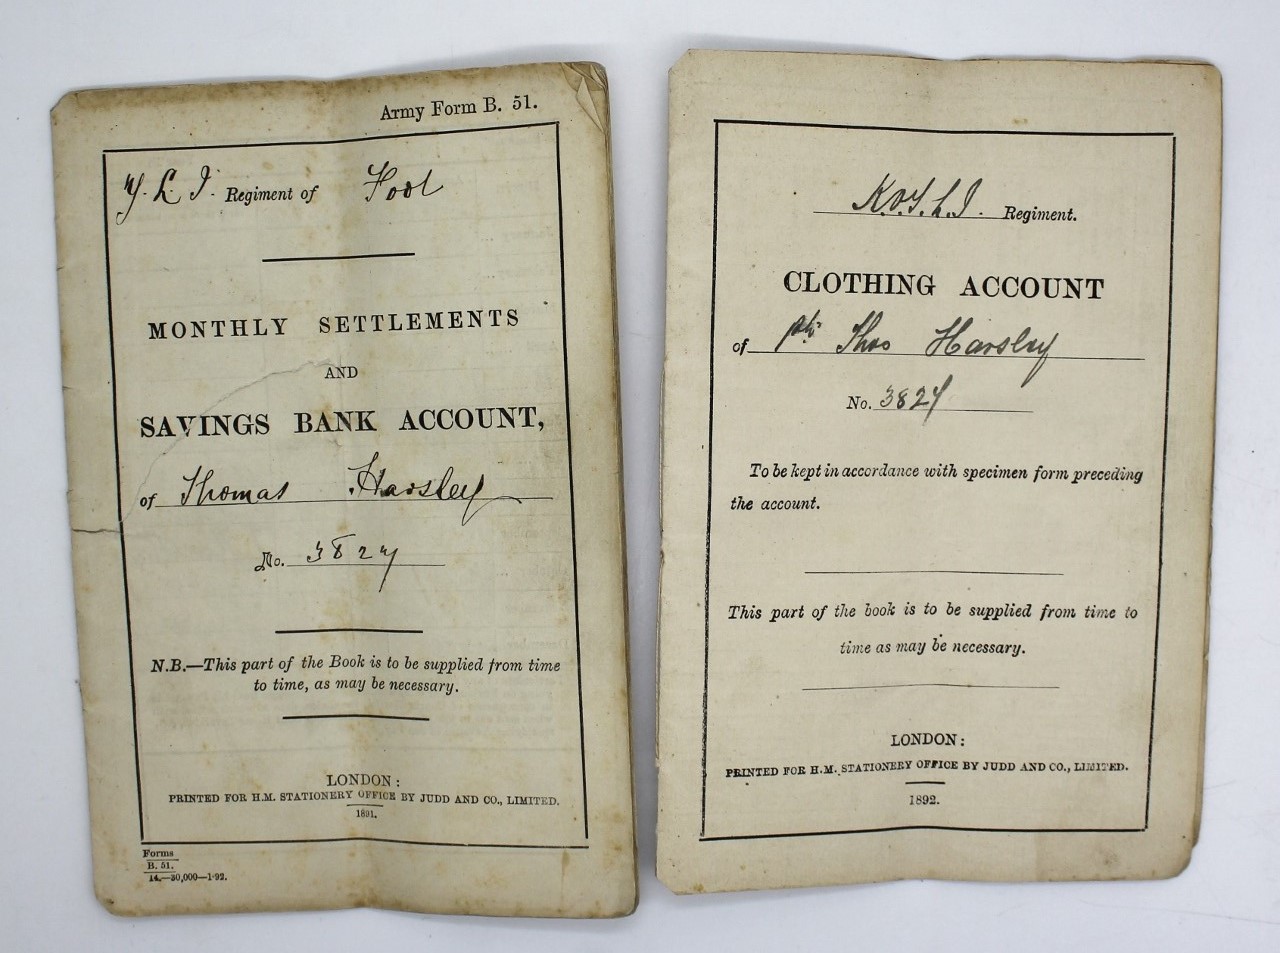 Army Form B. 51.
Y. L. I. Regiment of Foot
MONTHLY SETTLEMENTS
AND
SAVINGS BANK ACCOUNT,
of Thomas Harsley
No. 3827
N.B.—This part of the Book is to be supplied from time
to time, as may be necessary.
LONDON:
PRINTED FOR H.M. STATIONERY OFFICE BY JUDD AND CO., LIMITED.
1891.
Forms
B. 51.
14.—30,000—1·92.
K.O.Y.L.I. Regiment.
CLOTHING ACCOUNT
of Pte Thos Harsley
No. 3827
To be kept in accordance with specimen form preceding
the account.
This part of the book is to be supplied from time to
time as may be necessary.
LONDON:
PRINTED FOR H.M. STATIONERY OFFICE BY JUDD AND CO., LIMITED.
1892.